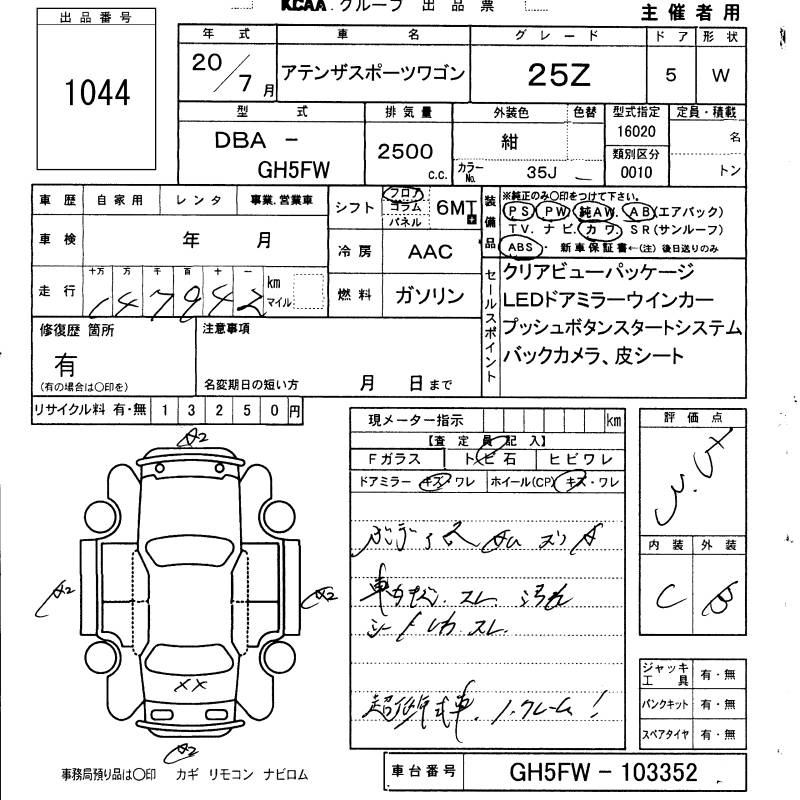 KCAA.グループ 出品票
主催者用
出品番号
1044
年式 車名 グレード ドア 形状
20/7月 アテンザスポーツワゴン 25Z 5 W
型式 排気量 外装色 色替 型式指定 定員・積載
DBA - GH5FW 2500 c.c. 紺 16020 名
カラーNo. 35J 類別区分 0010 トン
車歴 自家用 レンタ 事業.営業車
シフト フロア コラム パネル 6MT
装備品 ※純正のみ○印をつけて下さい。
PS PW 純AW AB(エアバック)
TV. ナビ. カワ. SR(サンルーフ)
ABS 新車保証書←(注)後日送りのみ
車検 年 月
冷房 AAC
走行 十万 万 千 百 十 一 km マイル
147942
燃料 ガソリン
セールスポイント
クリアビューパッケージ
LEDドアミラーウインカー
プッシュボタンスタートシステム
バックカメラ、皮シート
修復歴 箇所
有
(有の場合は○印を)
注意事項
名変期日の短い方 月 日まで
リサイクル料 有・無 13250円
現メーター指示 km
【査定員記入】
Fガラス トビ石 ヒビワレ
ドアミラー キズ・ワレ ホイール(CP) キズ・ワレ
評価点
内装 外装
C B
A2
A2
A2
XX
A2
シートカワ スレ.
超低年式車. ノークレーム!
ジャッキ工具 有・無
パンクキット 有・無
スペアタイヤ 有・無
事務局預り品は○印 カギ リモコン ナビロム
車台番号 GH5FW-103352